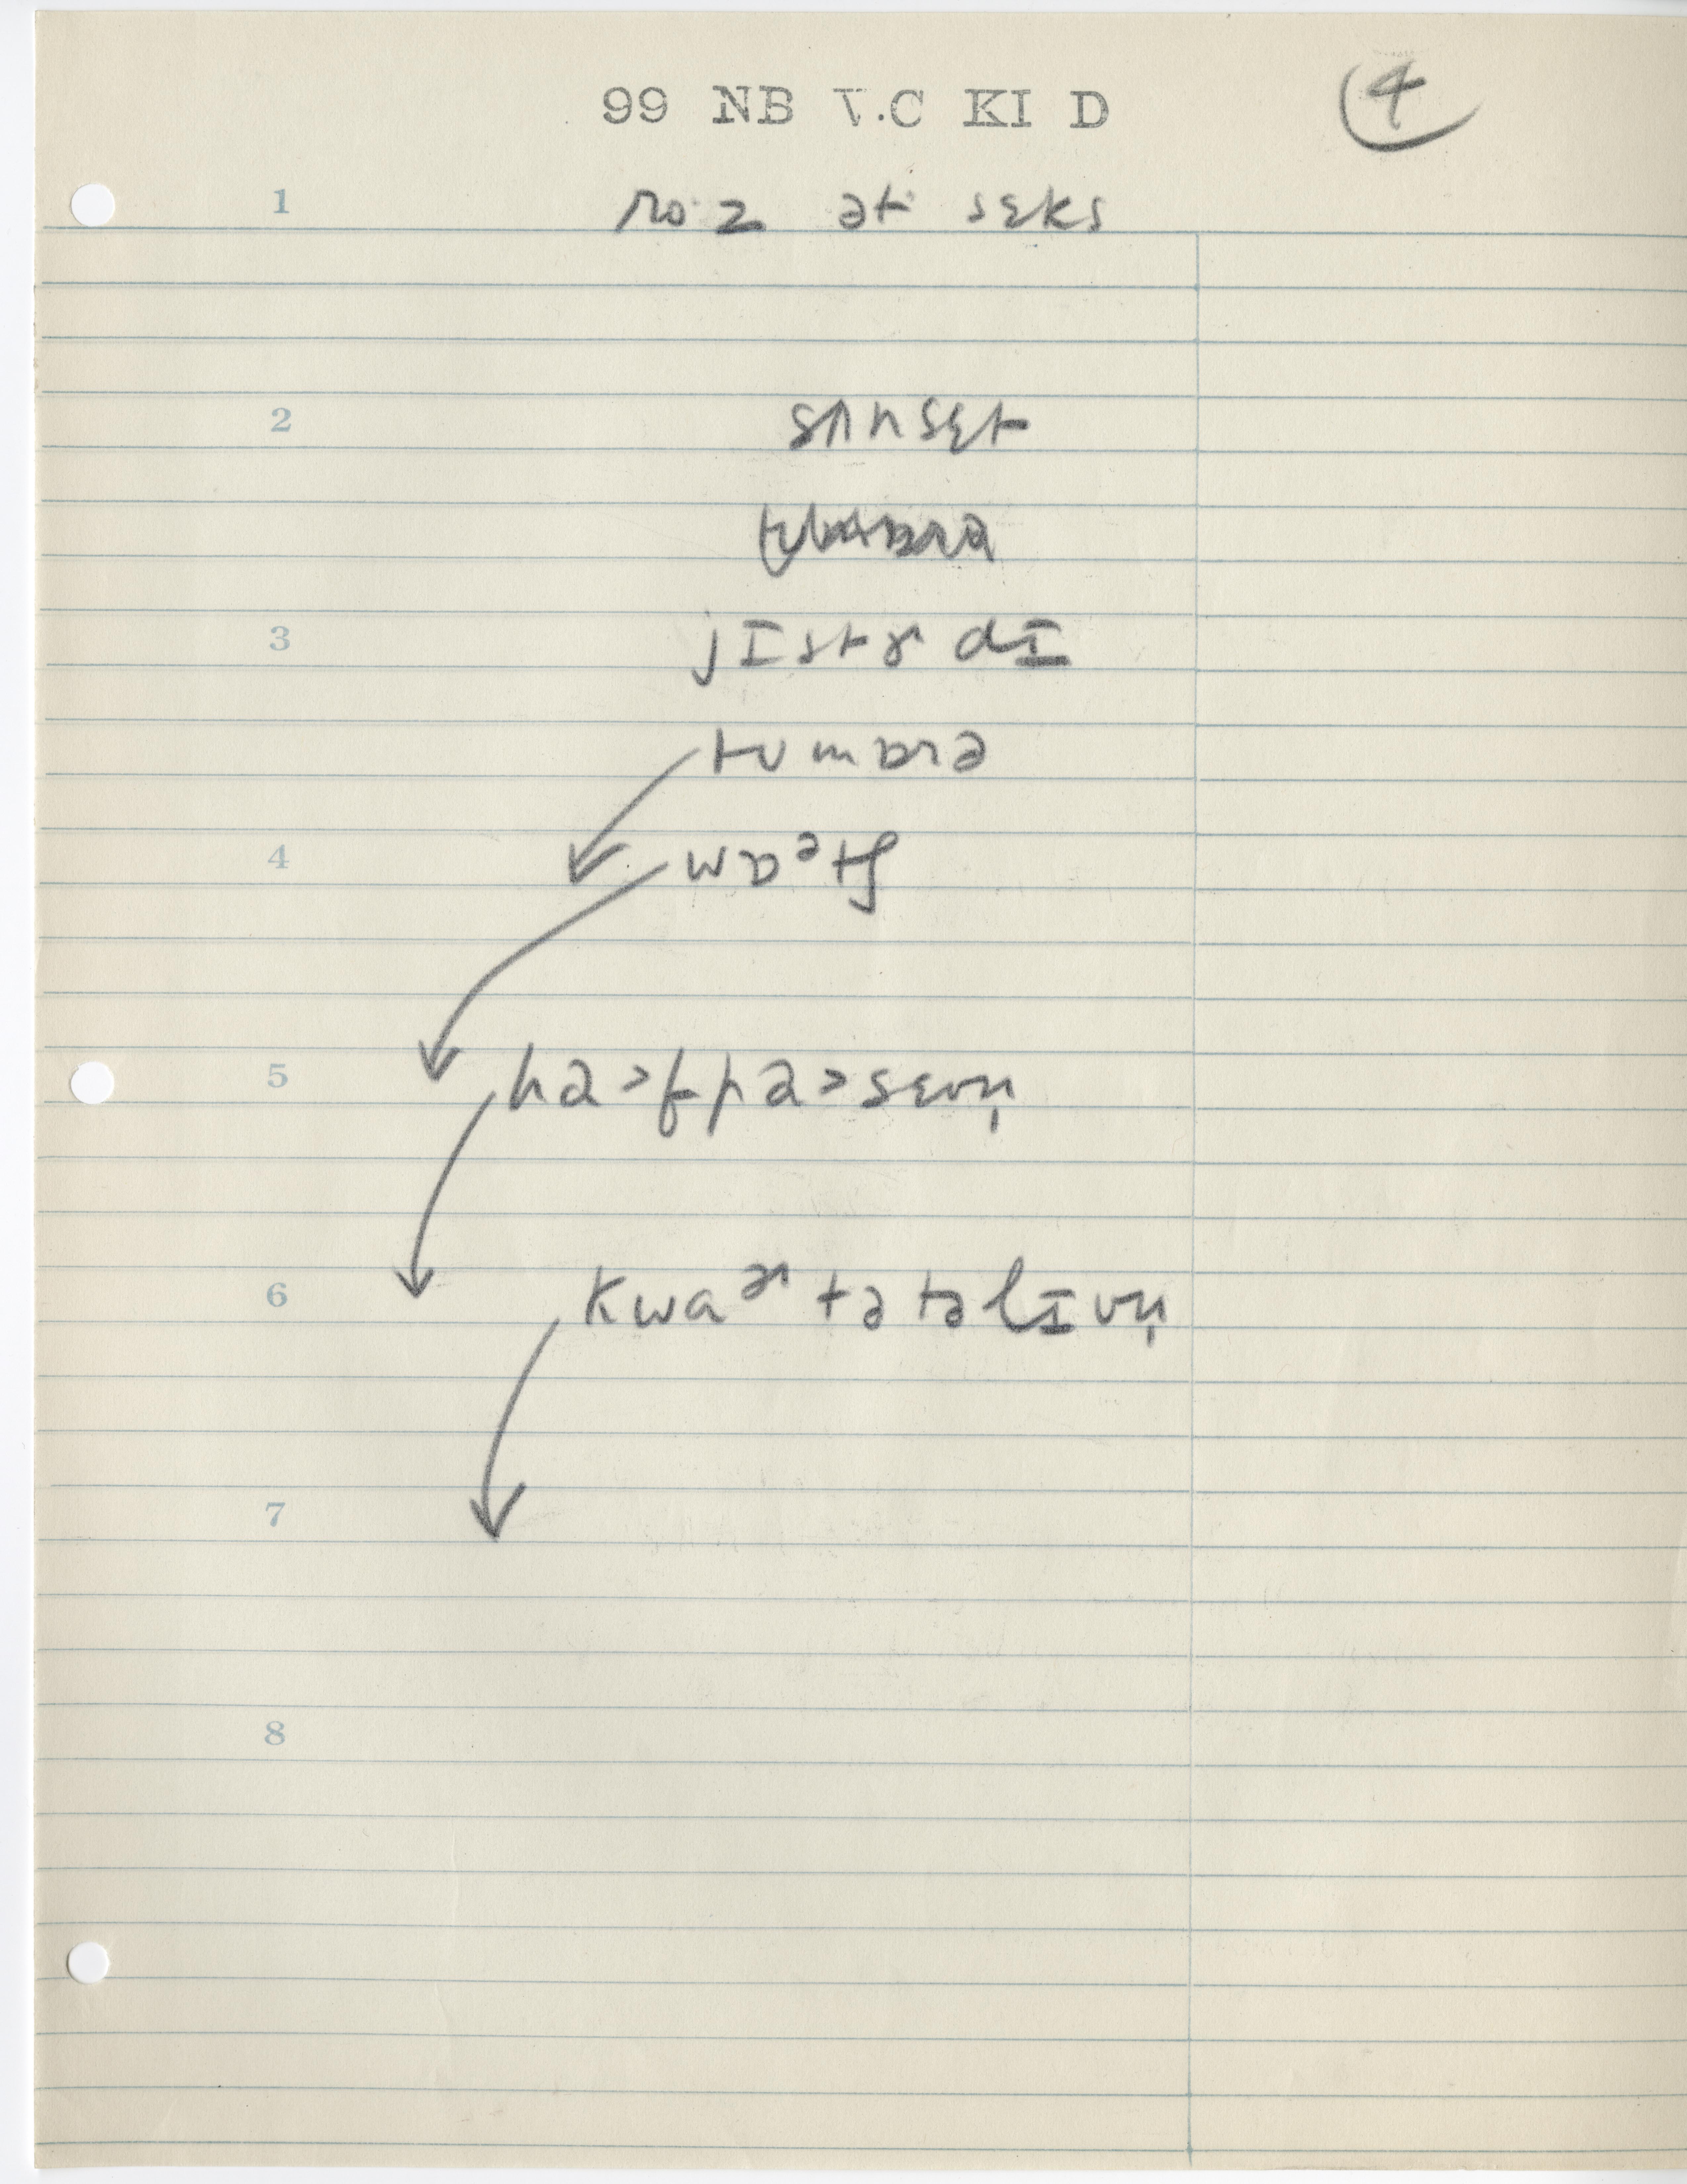 99 NB V.C KI D
4
1 ro·z ət sɛks
2 sʌnsɛt
3 jɪstɚdɪ
tumɒrə
4 wɒᵊtʃ
5 ha>fpa>sɛvn̩
6 kwaᵊʳtətəlɪvn̩
7
8